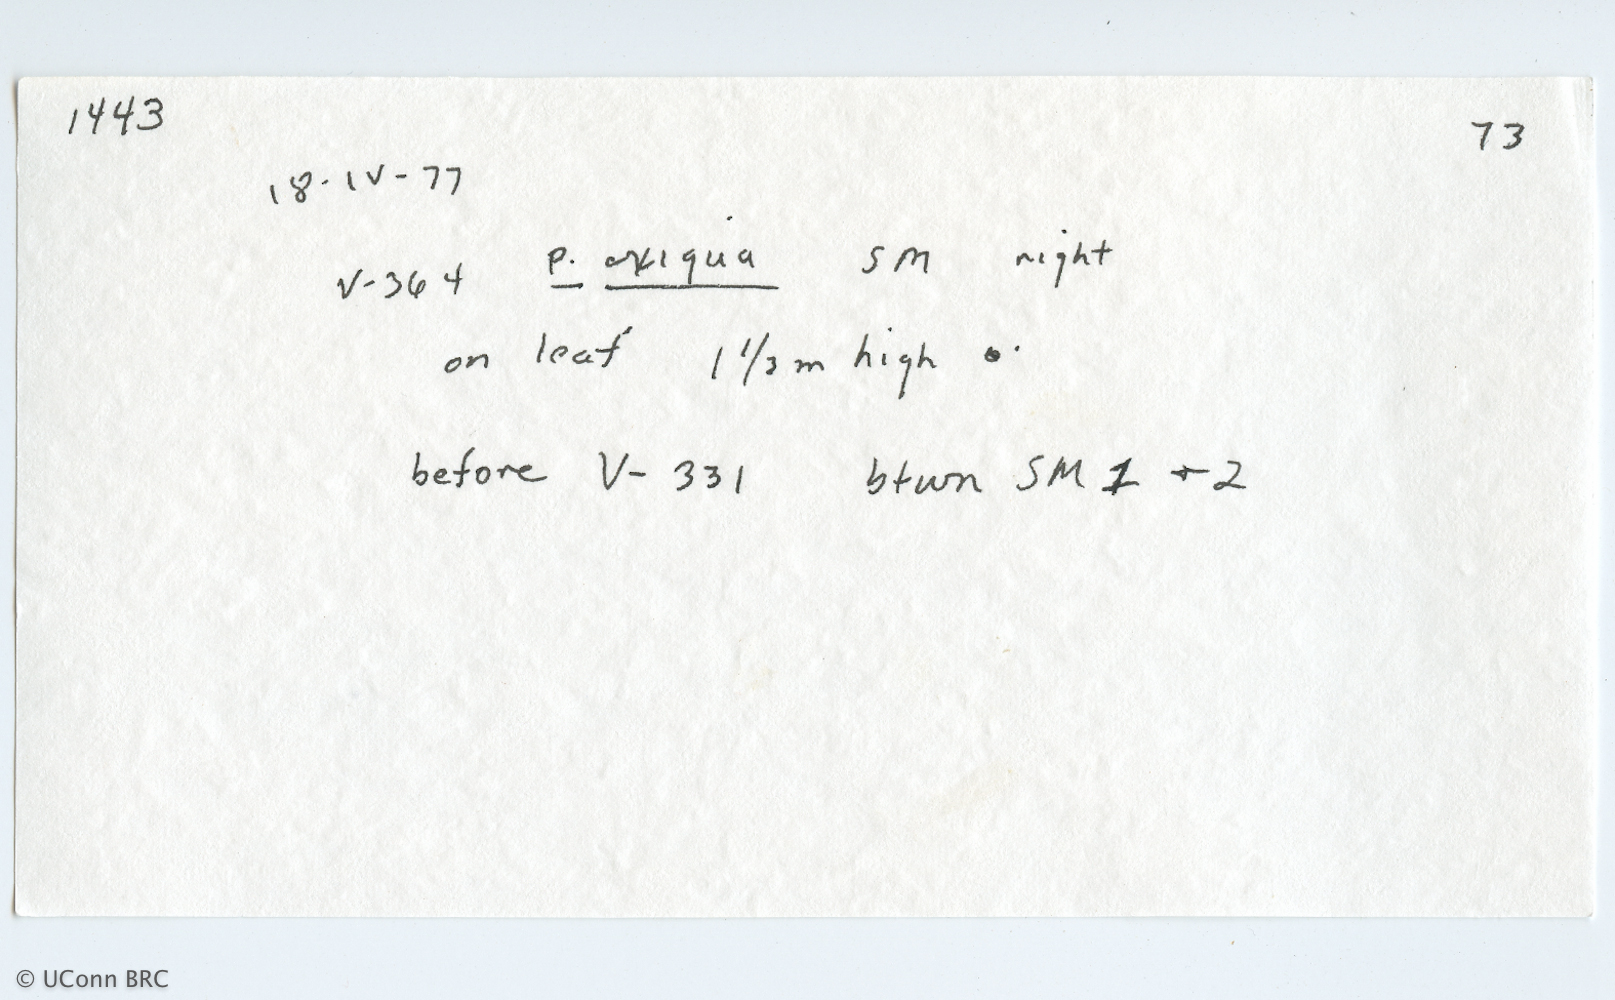 1443
73
18-IV-77
V-364 P. exiqua SM night
on leaf 1 1/3 m high
before V-331 btwn SM 1 + 2
© UConn BRC